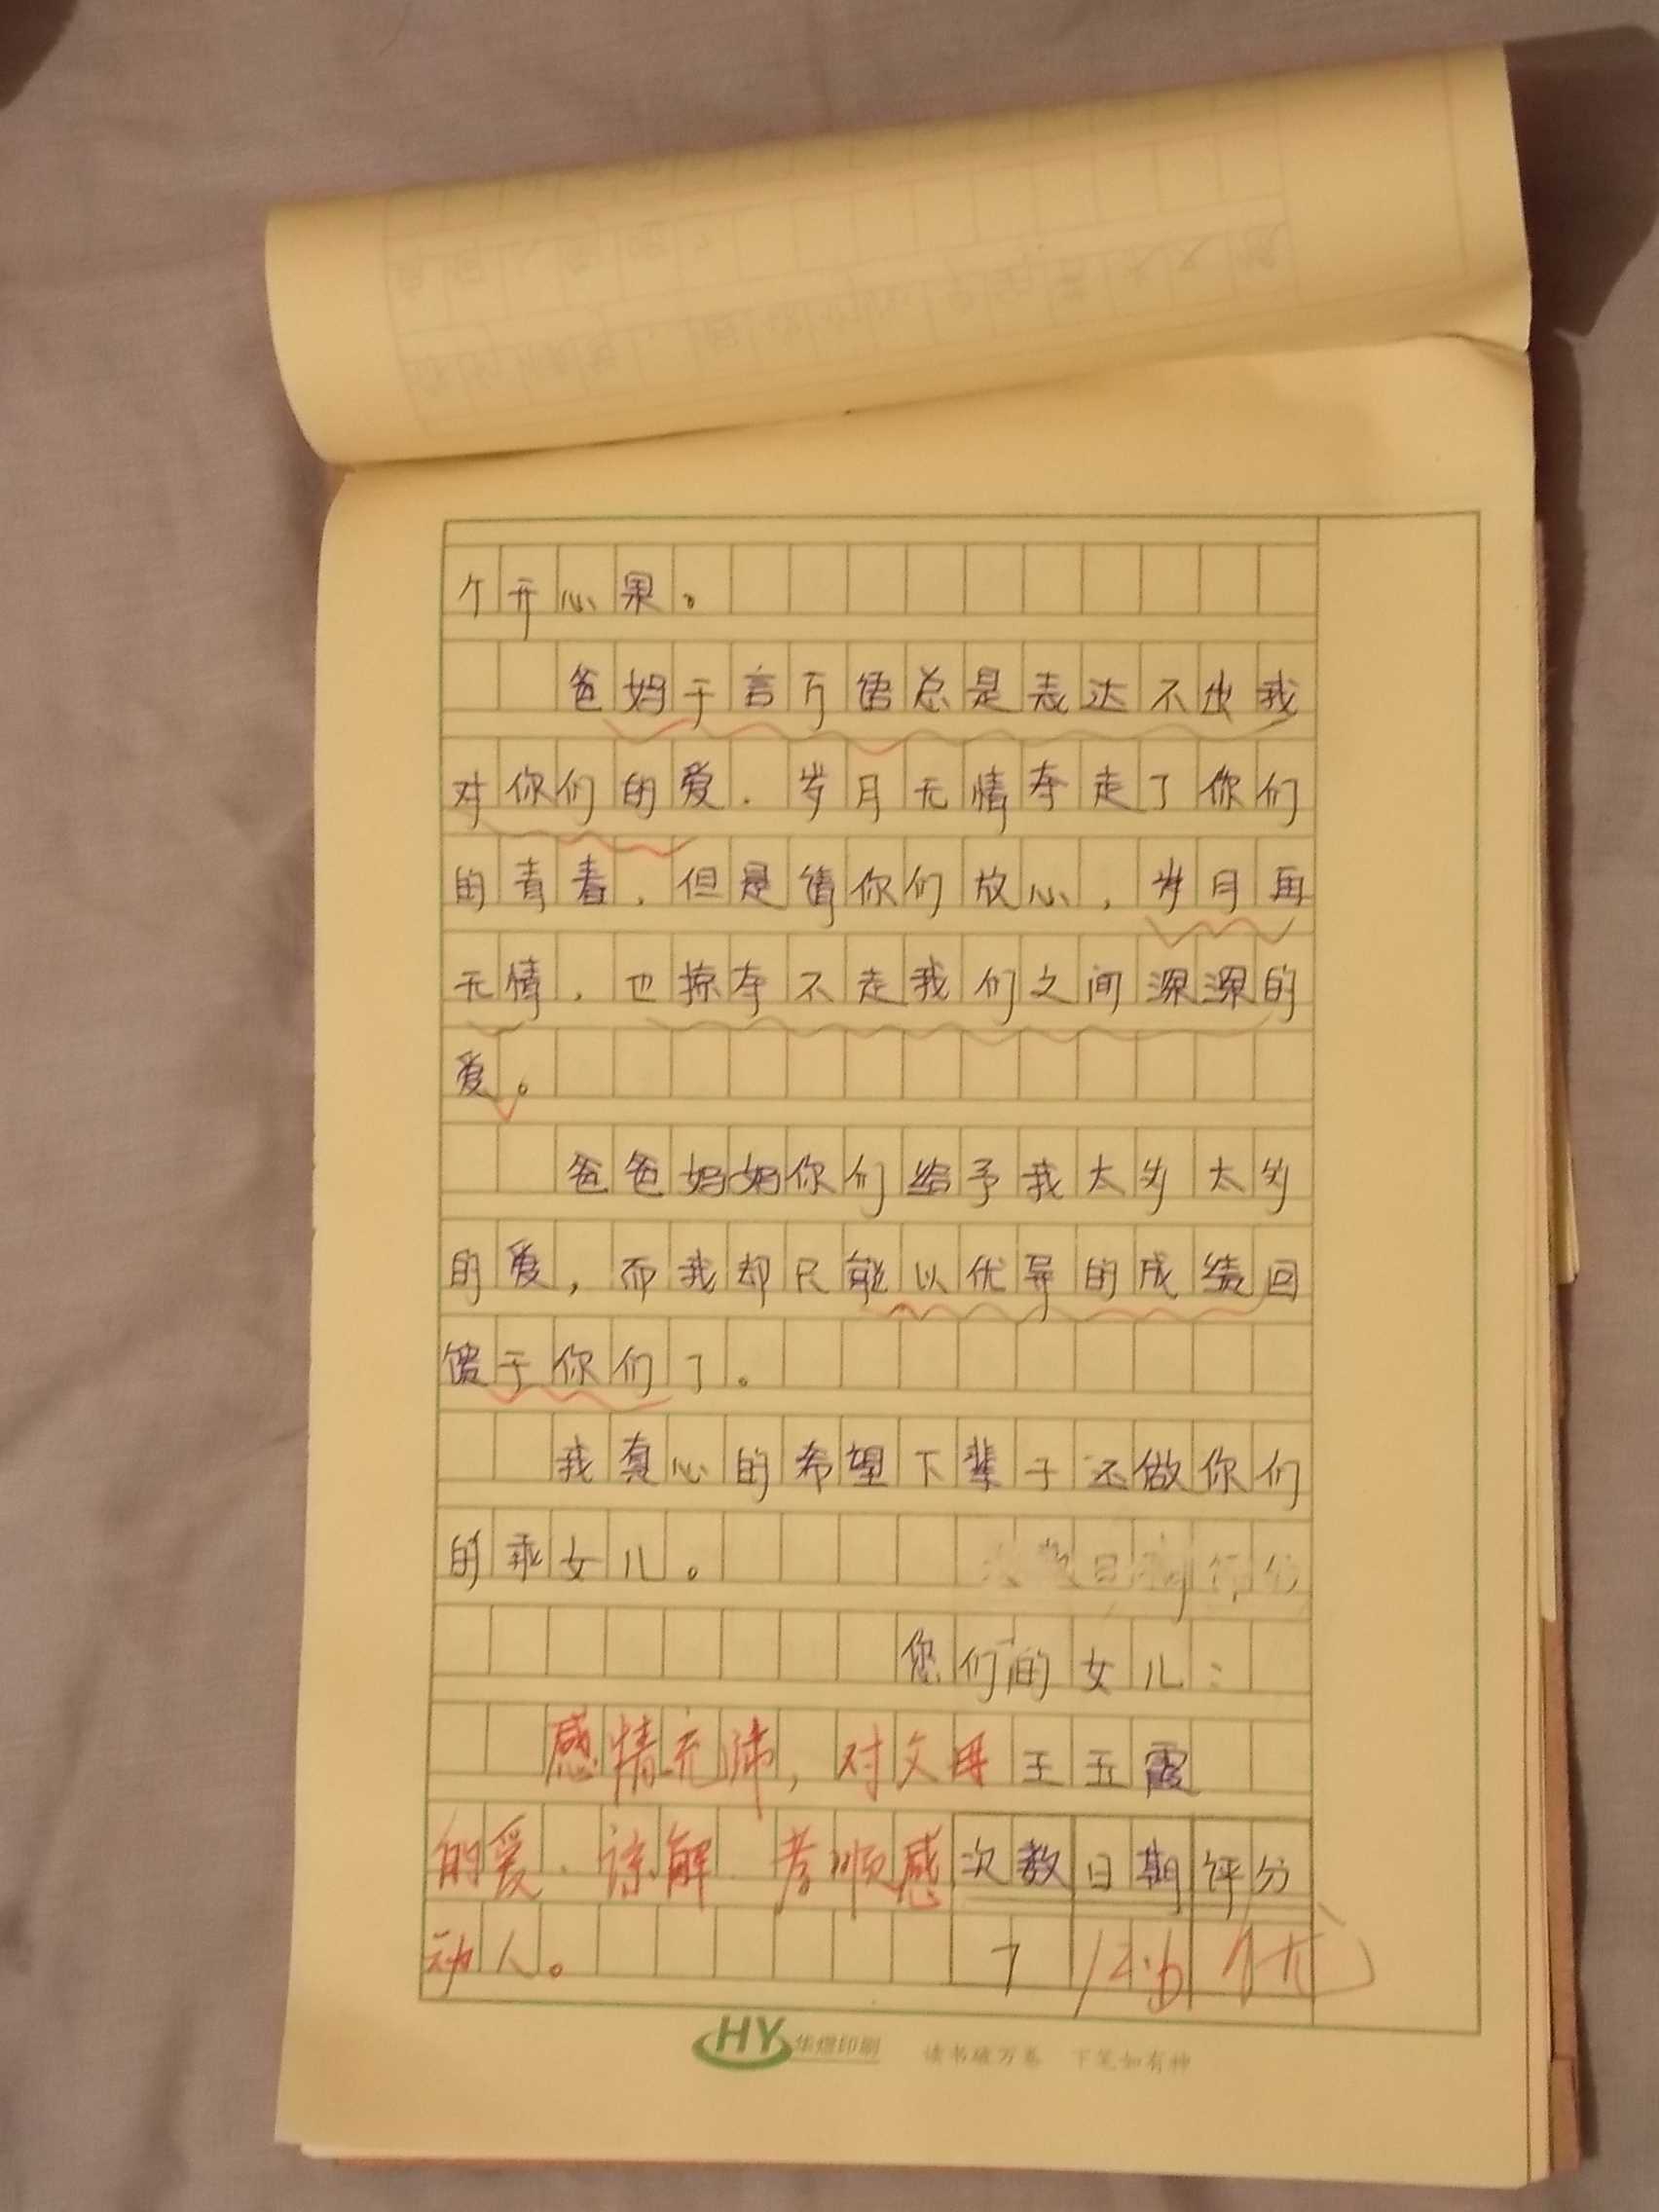 个开心果。
爸妈千言万语总是表达不出我
对你们的爱.岁月无情夺走了你们
的青春,但是请你们放心,岁月再
无情,也掠夺不走我们之间深深的
爱。
爸爸妈妈你们给予我太多太多
的爱,而我却只能以优异的成绩回
馈于你们了。
我真心的希望下辈子还做你们
的乖女儿。
您们的女儿:
感情充沛,对父母 王玉霞
的爱.谅解.孝顺感 次数 日期 评分
动人。 7 12.6 优
HY 华煜印刷 读书破万卷 下笔如有神